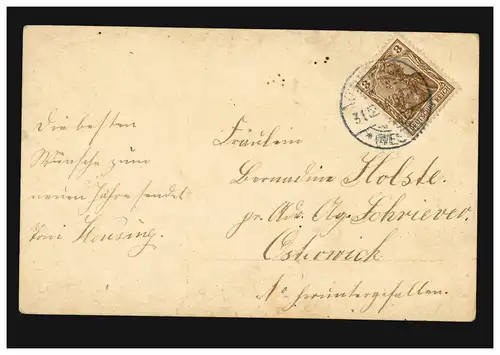 Die besten
Wünsche zum
neuen Jahre sendet
Toni Housing.
Fräulein
Bernadine Holste.
pr. Adr. Ag. Schriever.
Osterwick
No heruntergefallen.
3
3
DEUTSCHES REICH
31.12
* (WES